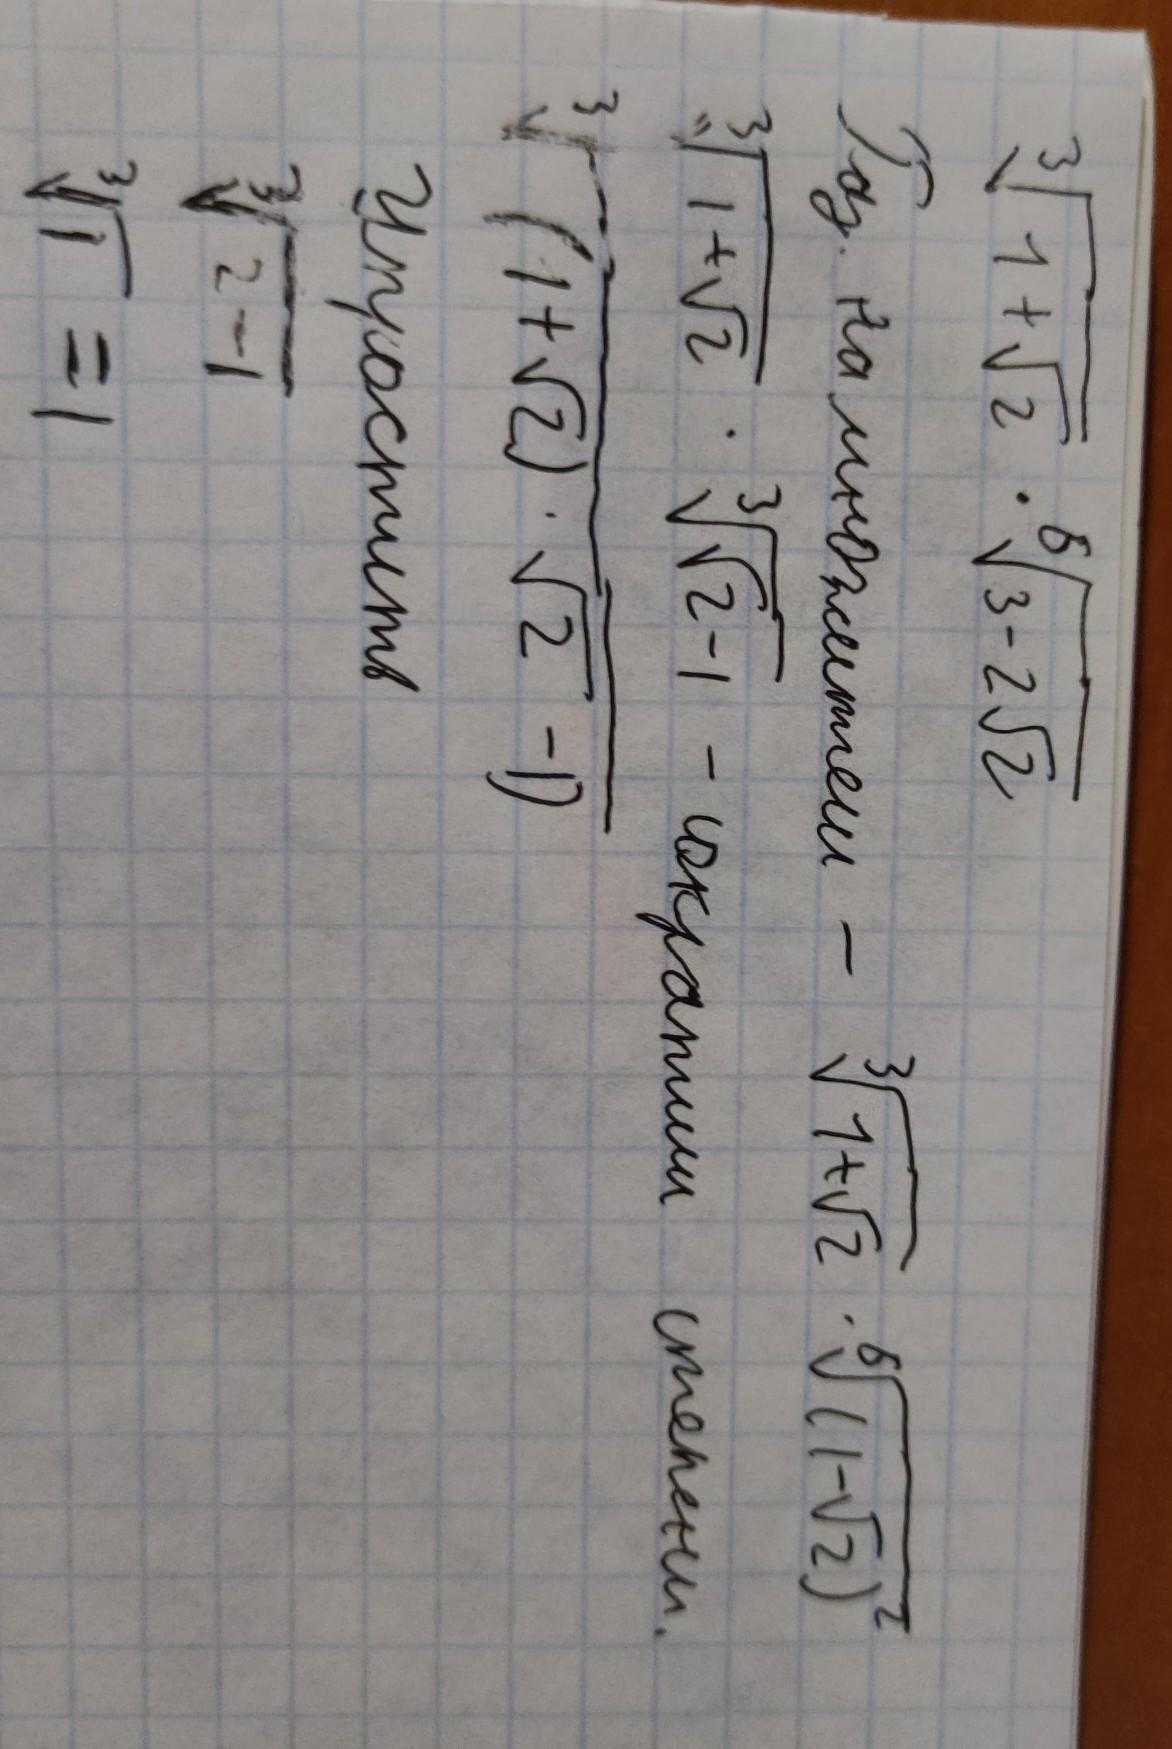 ∛(1+√2) · ⁶√(3-2√2)
Раз. на множители - ∛(1+√2) · ⁶√((1-√2)²)
∛(1+√2) · ∛(√2-1) - сократили степени.
∛((1+√2) · √2 -1)
Упростить
∛(2-1)
∛1 = 1